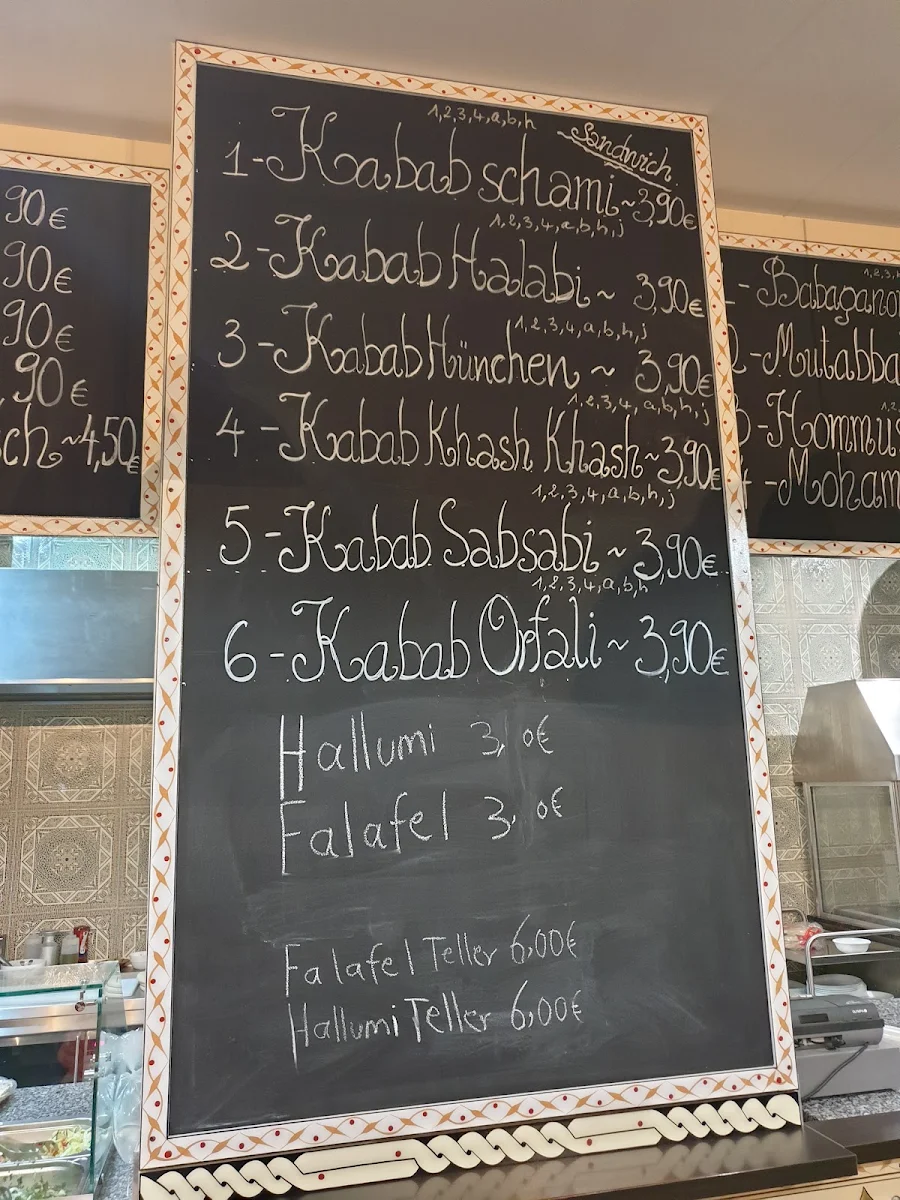 90€
90€
90€
90€
ch ~4,50€
Sandwich
1,2,3,4,a,b,h
1-Kabab schami ~3,90€
1,2,3,4,a,b,h,j
2-Kabab Halabi ~ 3,90€
1,2,3,4,a,b,h,j
3-Kabab Hünchen ~ 3,90€
1,2,3,4,a,b,h,j
4-Kabab Khash Khash ~3,90€
1,2,3,4,a,b,h,j
5-Kabab Sabsabi ~ 3,90€
1,2,3,4,a,b,h
6-Kabab Orfali ~ 3,90€
Hallumi 3, 0€
Falafel 3, 0€
Falafel Teller 6,00€
Hallumi Teller 6,00€
1,2,3,h
- Babagano
- Mutabba
- Hommus
- Moham